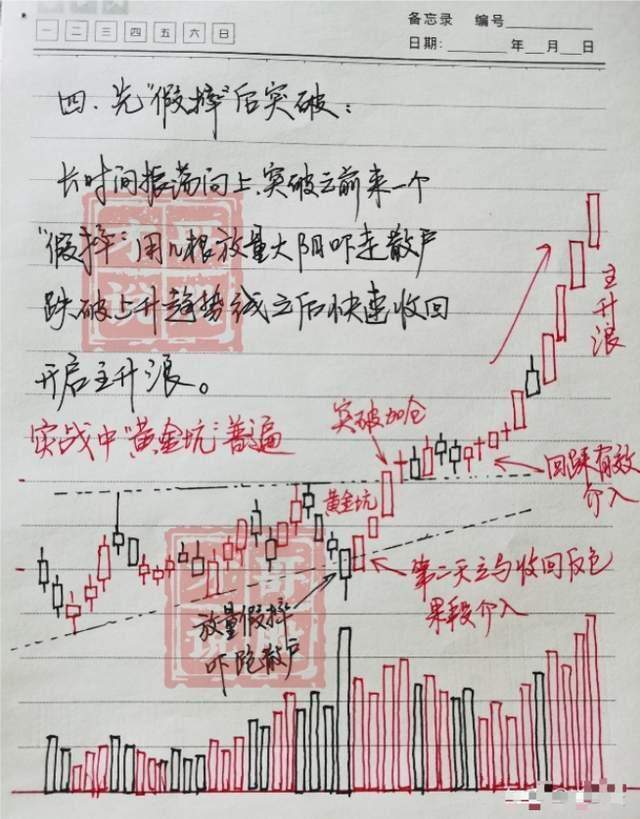 备忘录 编号
一 二 三 四 五 六 日
日期: 年 月 日
四.先"假摔"后突破:
长时间振荡向上.突破之前来一个
"假摔"用几根放量大阴吓走散户
跌破上升趋势线之后快速收回
开启主升浪。
主升浪
实战中"黄金坑"普遍
突破加仓
回踩有效
介入
黄金坑
第二天立马收回反包
果段介入
放量假摔
吓跑散户